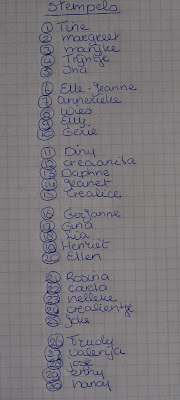 Stempels
1 Tine
2 margreet
3 marijke
4 Trijntje
5 Ina
6 Elle-Jeanne
7 Annerieke
8 Wies
9 Elly
10 Gerie
11 Diny
12 creacianita
13 Daphne
14 Jeanet
15 Crealice
16 Gerjanne
17 Gina
18 Lia
19 Henriet
20 Ellen
21 Rosina
22 carla
23 nelleke
24 crealientje
25 Joke
26 Trudy
27 Valerija
28 José
29 Jenny
30 nandy